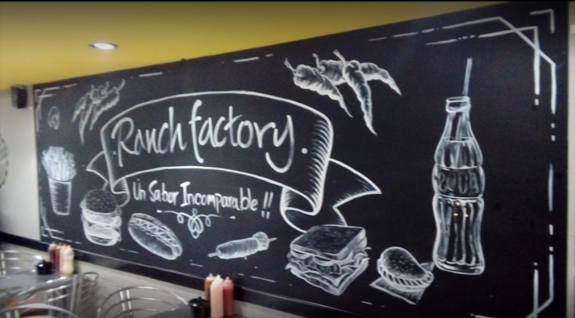 Ranch factory.
Un Sabor Incomparable!!